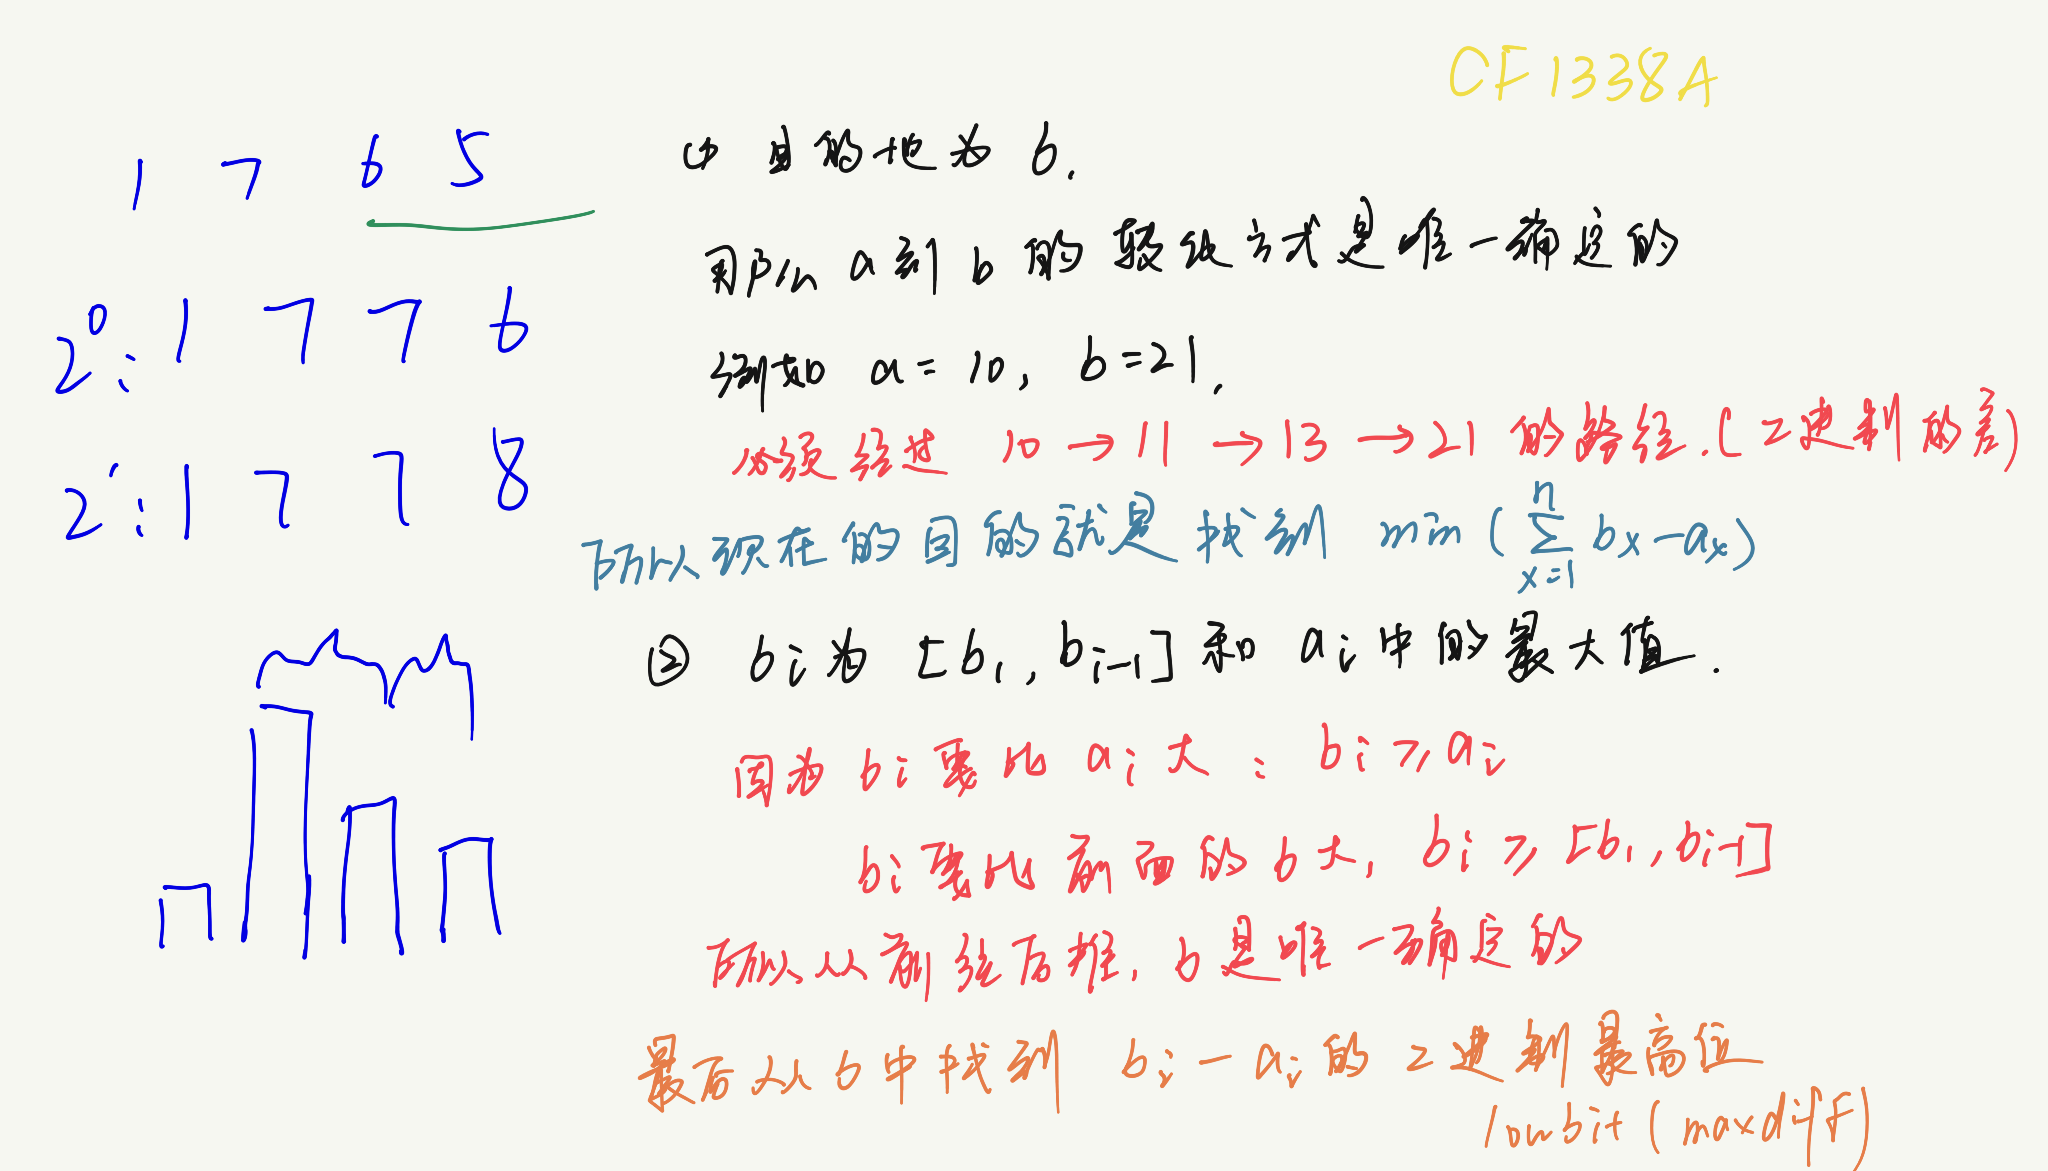 CF1338A
1 7 6 5
2⁰: 1 7 7 6
2¹: 1 7 7 8
① 目的地为 b.
那么 a 到 b 的转化方式是唯一确定的
例如 a = 10, b = 21.
必须经过 10 → 11 → 13 → 21 的路径.(2进制的差)
所以现在的目的就是找到 min (∑ₓ₌₁ⁿ bₓ - aₓ)
② bᵢ为 [b₁, bᵢ₋₁] 和 aᵢ中的最大值.
因为 bᵢ要比 aᵢ大 : bᵢ ⩾ aᵢ
bᵢ要比前面的 b 大, bᵢ ⩾ [b₁, bᵢ₋₁]
所以从前往后推, b 是唯一确定的
最后从 b 中找到 bᵢ - aᵢ 的 2进制最高位
lowbit (maxdiff)